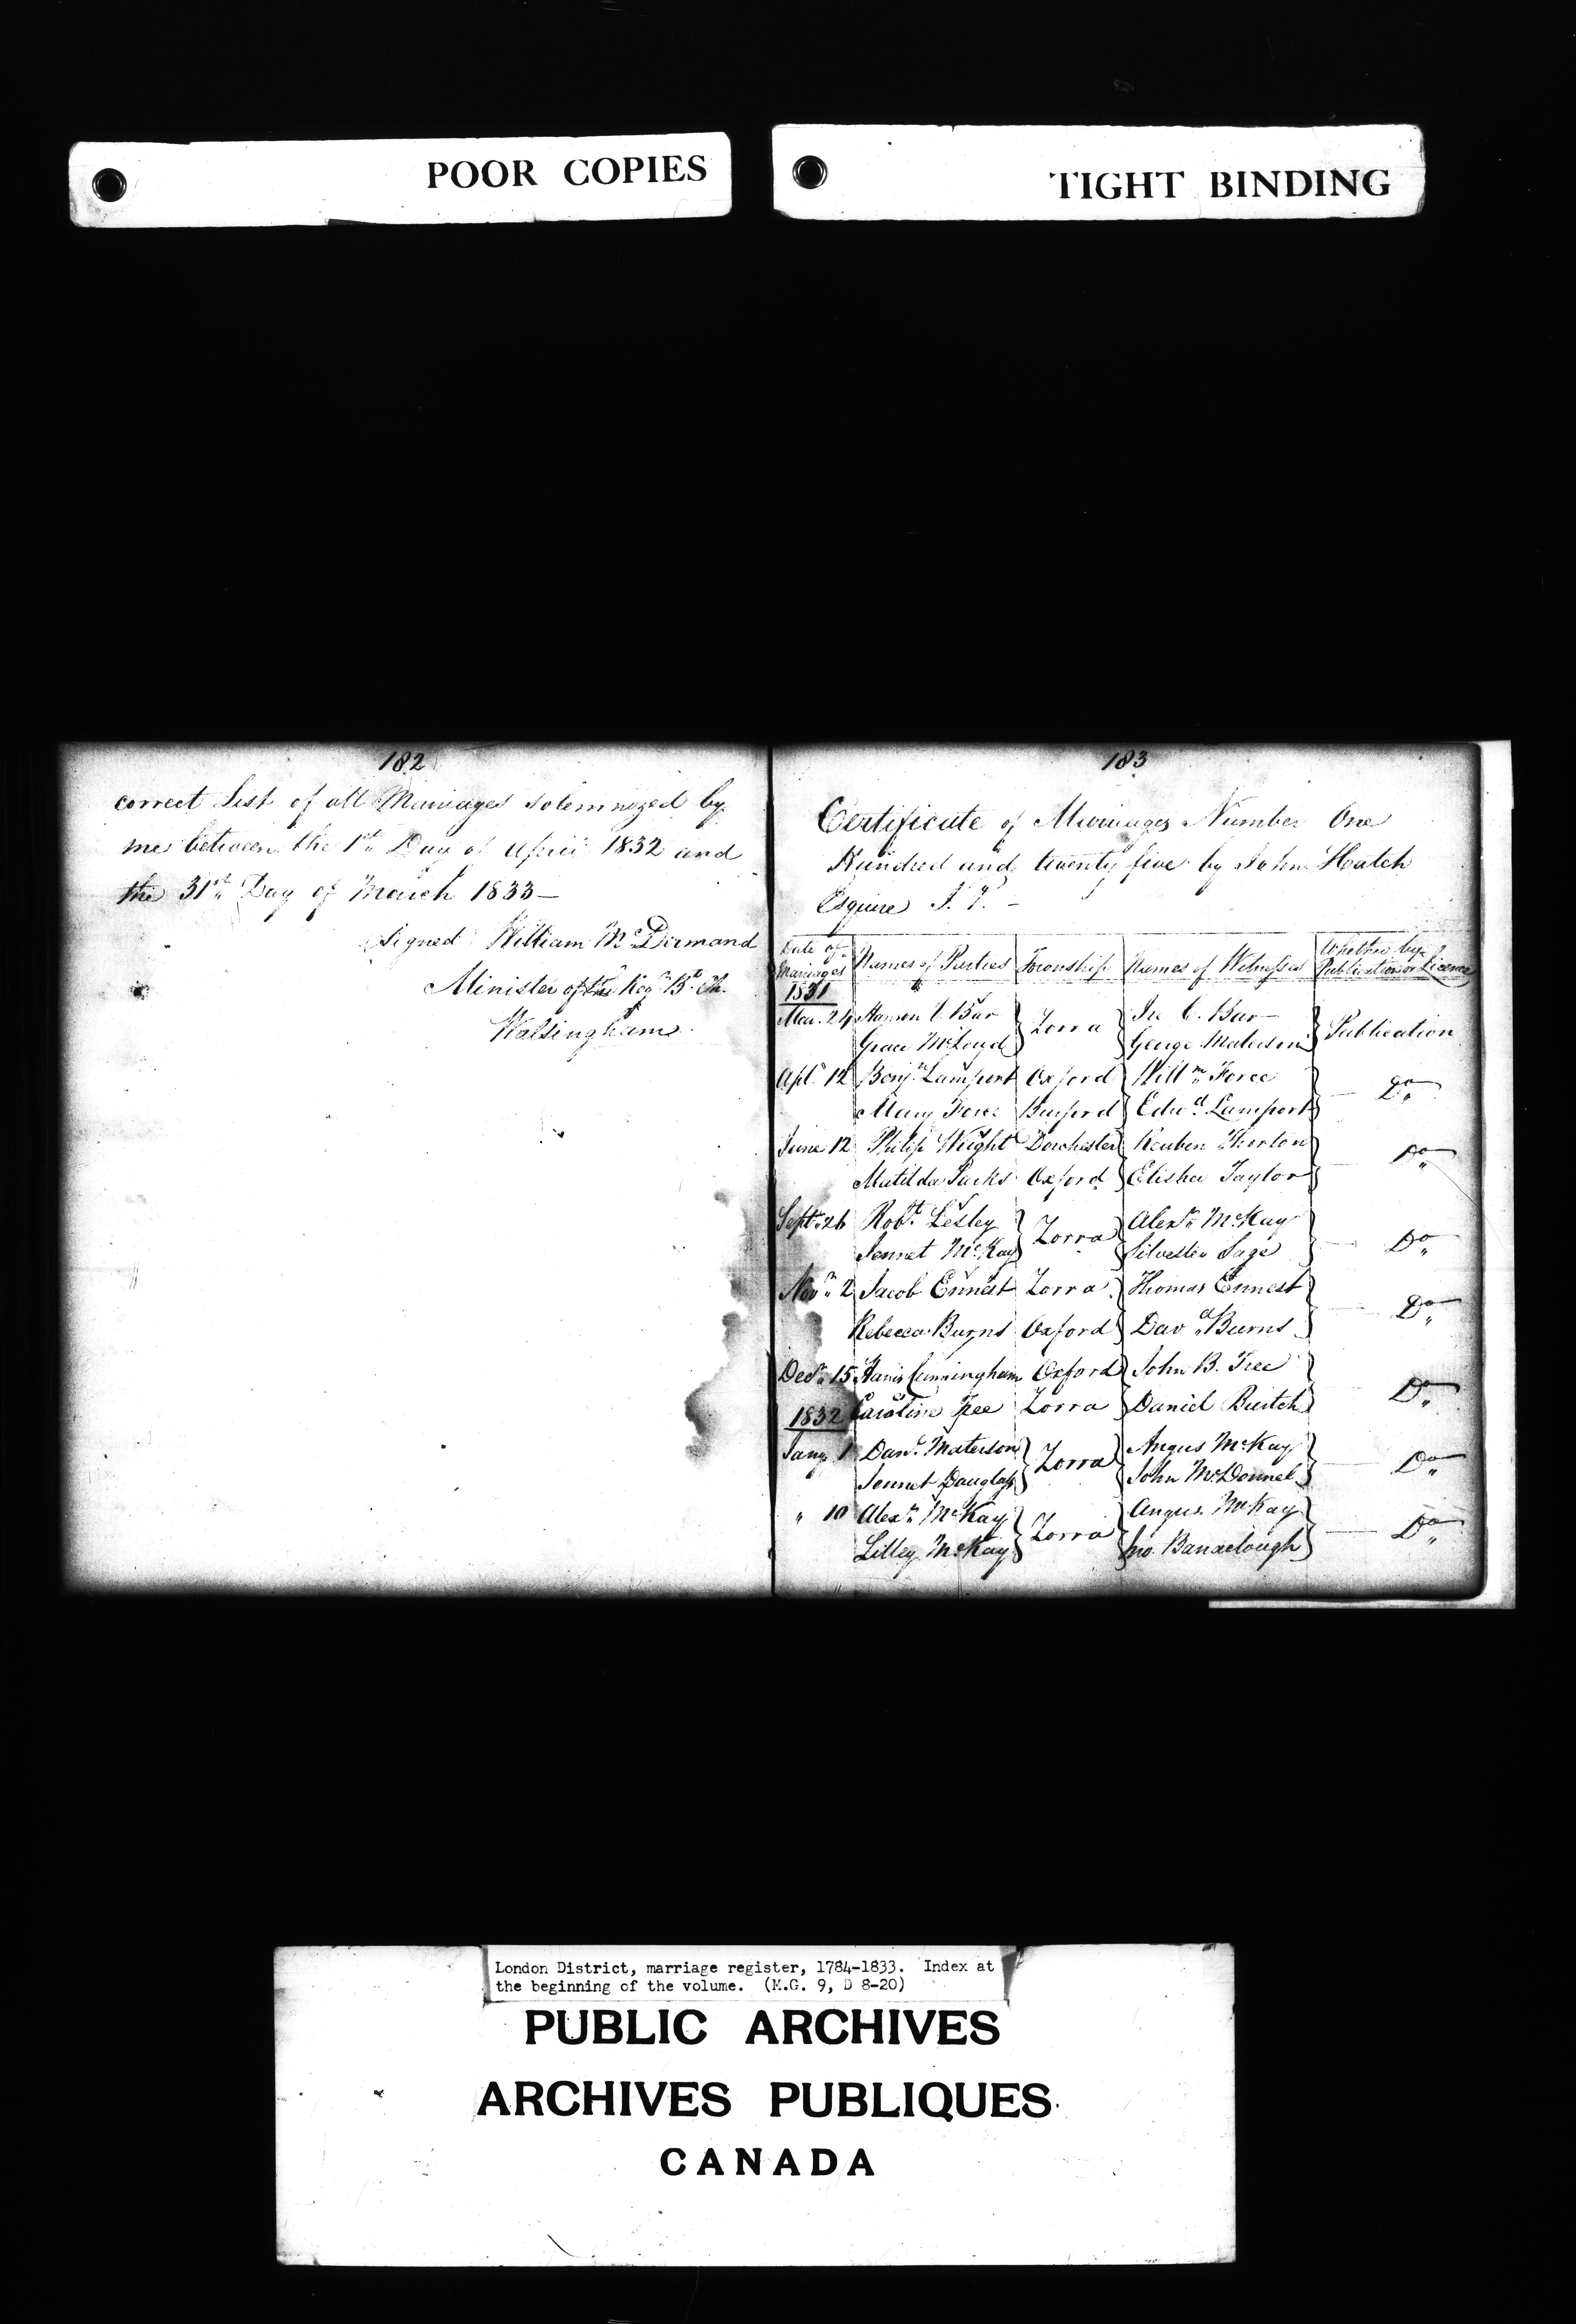 POOR COPIES
TIGHT BINDING
182
correct List of all Marriages solemnized by
me between the 1st Day of April 1832 and
the 31st Day of March 1833—
Signed William McDermand
Minister of the Reg. Bt. Ch.
Walsingham
183
Certificate of Marriages Number One
Hundred and twenty five by John Hatch
Esquire J. P. —
Date of Marriages Names of Parties Township Names of Witnesses Whether by Publication or Licence
1831
Mar. 24 C. Bar Zorra Ira C. Bar Publication
Grace McLoyd George Materson
Apl. 12 Benjn. Lamport Oxford Willm. Force Do
Mary Force Burford Edwd. Lamport
June 12 Philip Wright Dorchester Reuben Thorton Do
Matilda Parks Oxford Elisha Taylor
Septr. 26 Robt. Lesley Zorra Alexr. McKay Do
Jennet McKay Silvester Sage
Novr. 2 Jacob Ennest Zorra Thomas Ennest Do
Rebecca Burns Oxford Davd. Burns
Decr. 15 Harris Cunningham Oxford John B. Tree Do
1832 Caroline Tree Zorra Daniel Burtch
Jany 1 Danl. Materson Zorra Angus McKay Do
Jennet Douglass John McDonnel
" 10 Alexr. McKay Zorra Angus McKay Do
Lilley McKay Jno. Banaclough
London District, marriage register, 1784-1833. Index at
the beginning of the volume. (M.G. 9, D 8-20)
PUBLIC ARCHIVES
ARCHIVES PUBLIQUES
CANADA